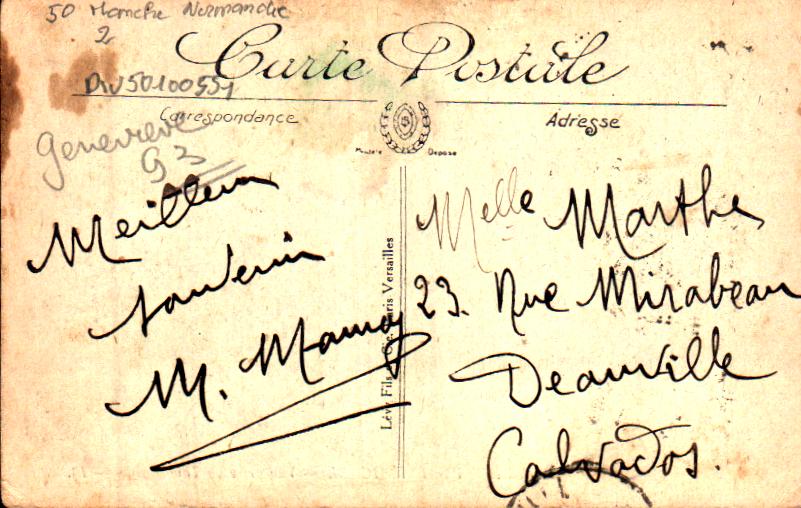 50 Manche Normandie
2
DIV50100551
Carte Postale
Correspondance
Adresse
Genevieve
G3
Modèle Déposé
Meilleur
souvenir
M. Mamoy
Lévy Fils & Cie. Paris Versailles
Melle Marthe
23. Rue Mirabeau
Deauville
Calvados.